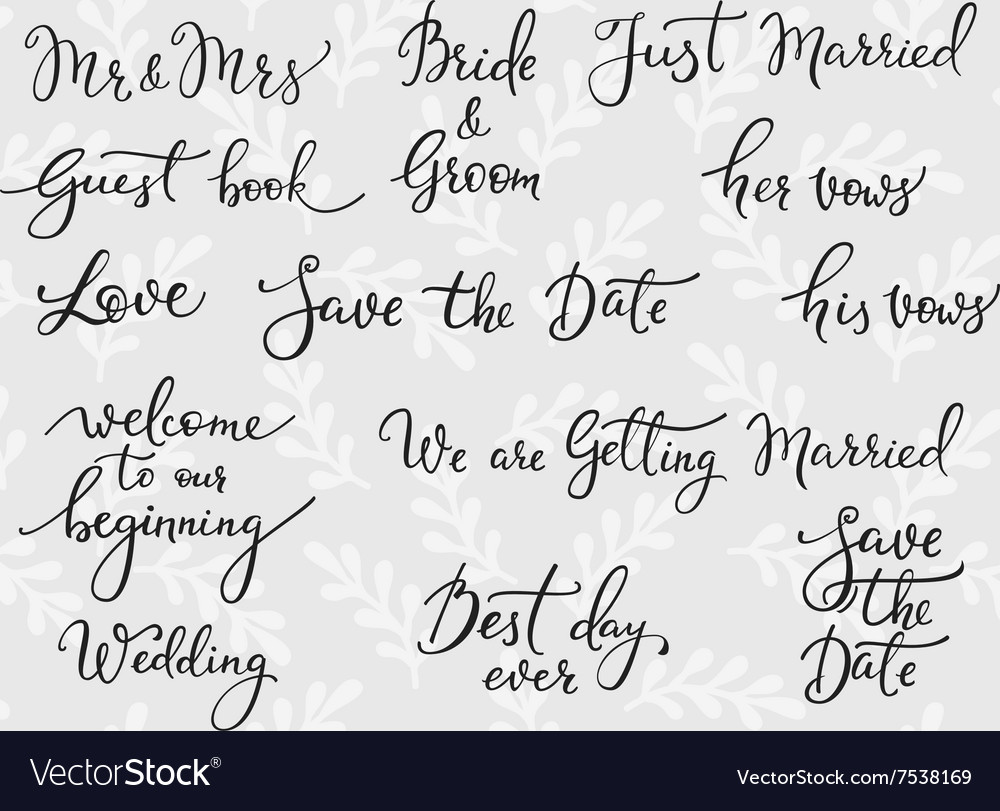 Mr & Mrs
Bride
&
Groom
Just Married
Guest book
her vows
Love
Save the Date
his vows
welcome
to our
beginning
We are Getting Married
Save
the
Date
Wedding
Best day
ever
VectorStock®
VectorStock.com/7538169